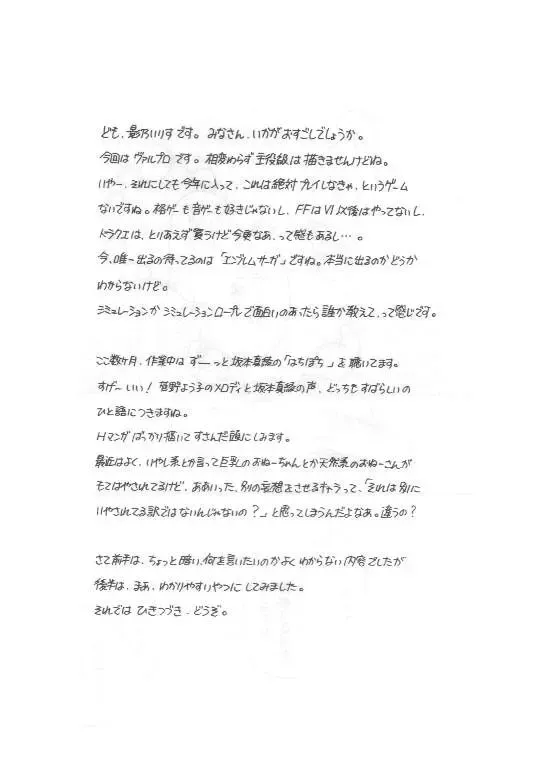 ども、影乃いりす です。みなさん、いかが おすごしでしょうか。
今回は ヴァルプロ です。相変わらず 主役級は 描きませんけどね。
いやー、それにしても 今年に入って、これは絶対 プレイしなきゃ、というゲーム
ないですね。格ゲーも 音ゲーも 好きじゃないし、FFは VI 以後は やってないし、
ドラクエは、とりあえず 買うけど 今更なあ、って感もあるし…。
今、唯一 出るの待ってるのは 「エンブレムサーガ」ですね。本当に出るのかどうか
わからないけど。
シミュレーションか シミュレーションロープレで 面白いのあったら 誰か教えて、って感じです。
ここ数ヶ月、作業中は ずーーっと 坂本真綾の「はちぽち」を 聴いてます。
すげー いい! 菅野よう子のメロディと 坂本真綾の声、どっちも すばらしいの
ひと語につきますね。
Hマンガ ばっかり 描いて すさんだ 頭に しみます。
最近はよく、いやし系とか言って 巨乳のおねーちゃんとか天然系のおねーさんが
もてはやされてるけど、ああいった、別の妄想をさせるキャラって、「それは別に
いやされてる訳ではないんじゃないの?」と 思ってしまうんだよなあ。違うの?
さて前半は、ちょっと 暗い、何を言いたいのか よく わからない 内容でしたが
後半は、まあ、わかりやすいやつに してみました。
それでは ひきつづき、どうぞ。